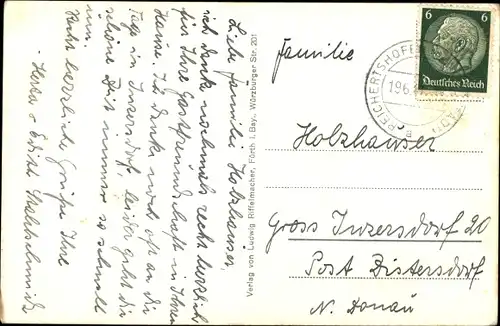 Liebe Familie Holzhauser,
ich danke nochmals recht herzlich
für Ihre Gastfreundschaft in Ihrem
Hause. Ich denke noch oft an die
Tage in Inzersdorf, leider geht die
schöne Zeit immer so schnell
um.
Recht herzliche Grüße Ihre
Verlag von Ludwig Riffelmacher, Fürth i. Bay., Würzburger Str. 201
6 6
Deutsches Reich
REICHERTSHOFEN
Familie
Holzhauser
Gross Inzersdorf 20
Post Zistersdorf
N. Donau